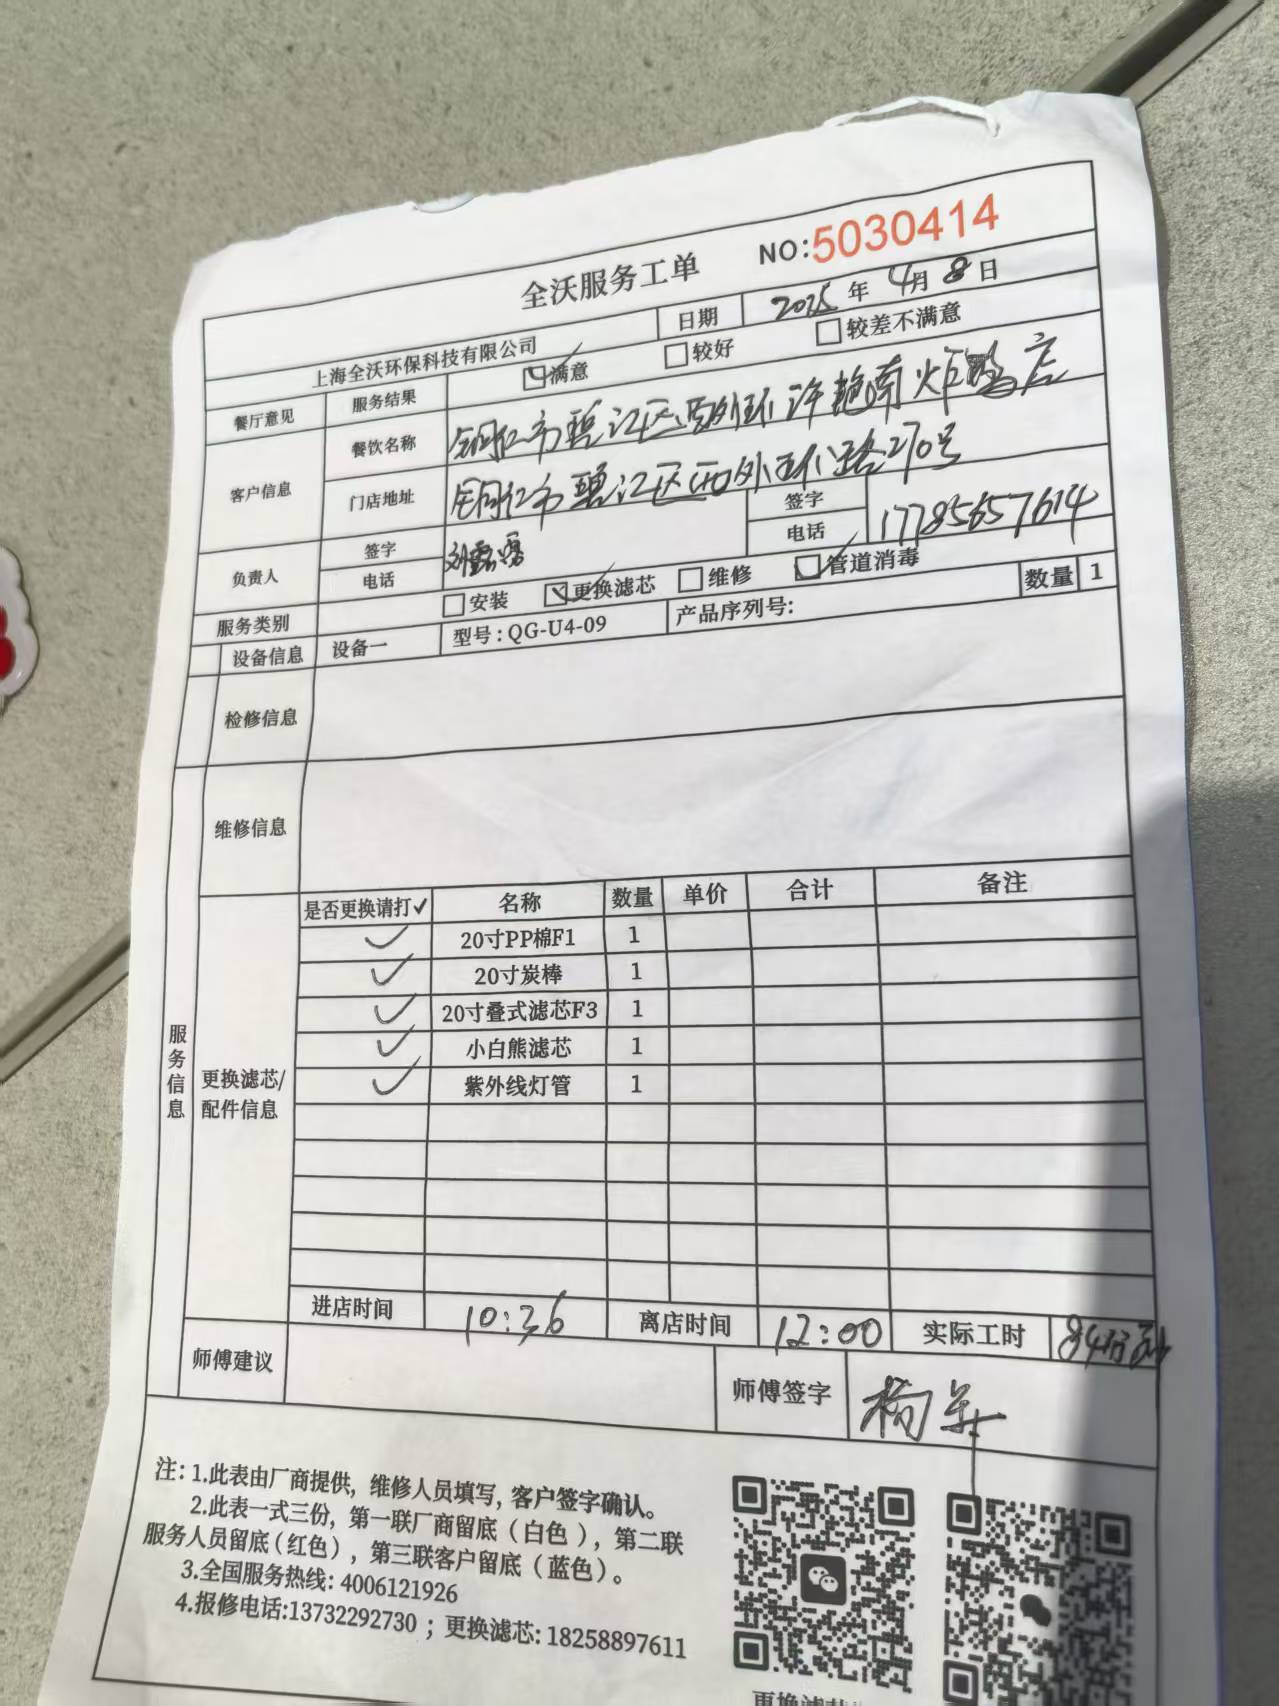 全沃服务工单 NO:5030414
上海全沃环保科技有限公司 日期 2025年4月8日
餐厅意见 服务结果 ☑满意 □较好 □较差不满意
客户信息 餐饮名称 铜仁市碧江区西外环许艳南炸鸡店
门店地址 铜仁市碧江区西外环路270号
负责人 签字 签字
电话 电话 17785657614
服务类别 □安装 ☑更换滤芯 □维修 ☑管道消毒
设备信息 设备一 型号:QG-U4-09 产品序列号: 数量 1
检修信息
维修信息
服务信息
更换滤芯/
配件信息
是否更换请打✓ 名称 数量 单价 合计 备注
✓ 20寸PP棉F1 1
✓ 20寸炭棒 1
✓ 20寸叠式滤芯F3 1
✓ 小白熊滤芯 1
✓ 紫外线灯管 1
进店时间 10:36 离店时间 12:00 实际工时 84分
师傅建议 师傅签字
注: 1.此表由厂商提供, 维修人员填写, 客户签字确认。
2.此表一式三份, 第一联厂商留底(白色), 第二联
服务人员留底(红色), 第三联客户留底(蓝色)。
3.全国服务热线: 4006121926
4.报修电话:13732292730 ; 更换滤芯: 18258897611